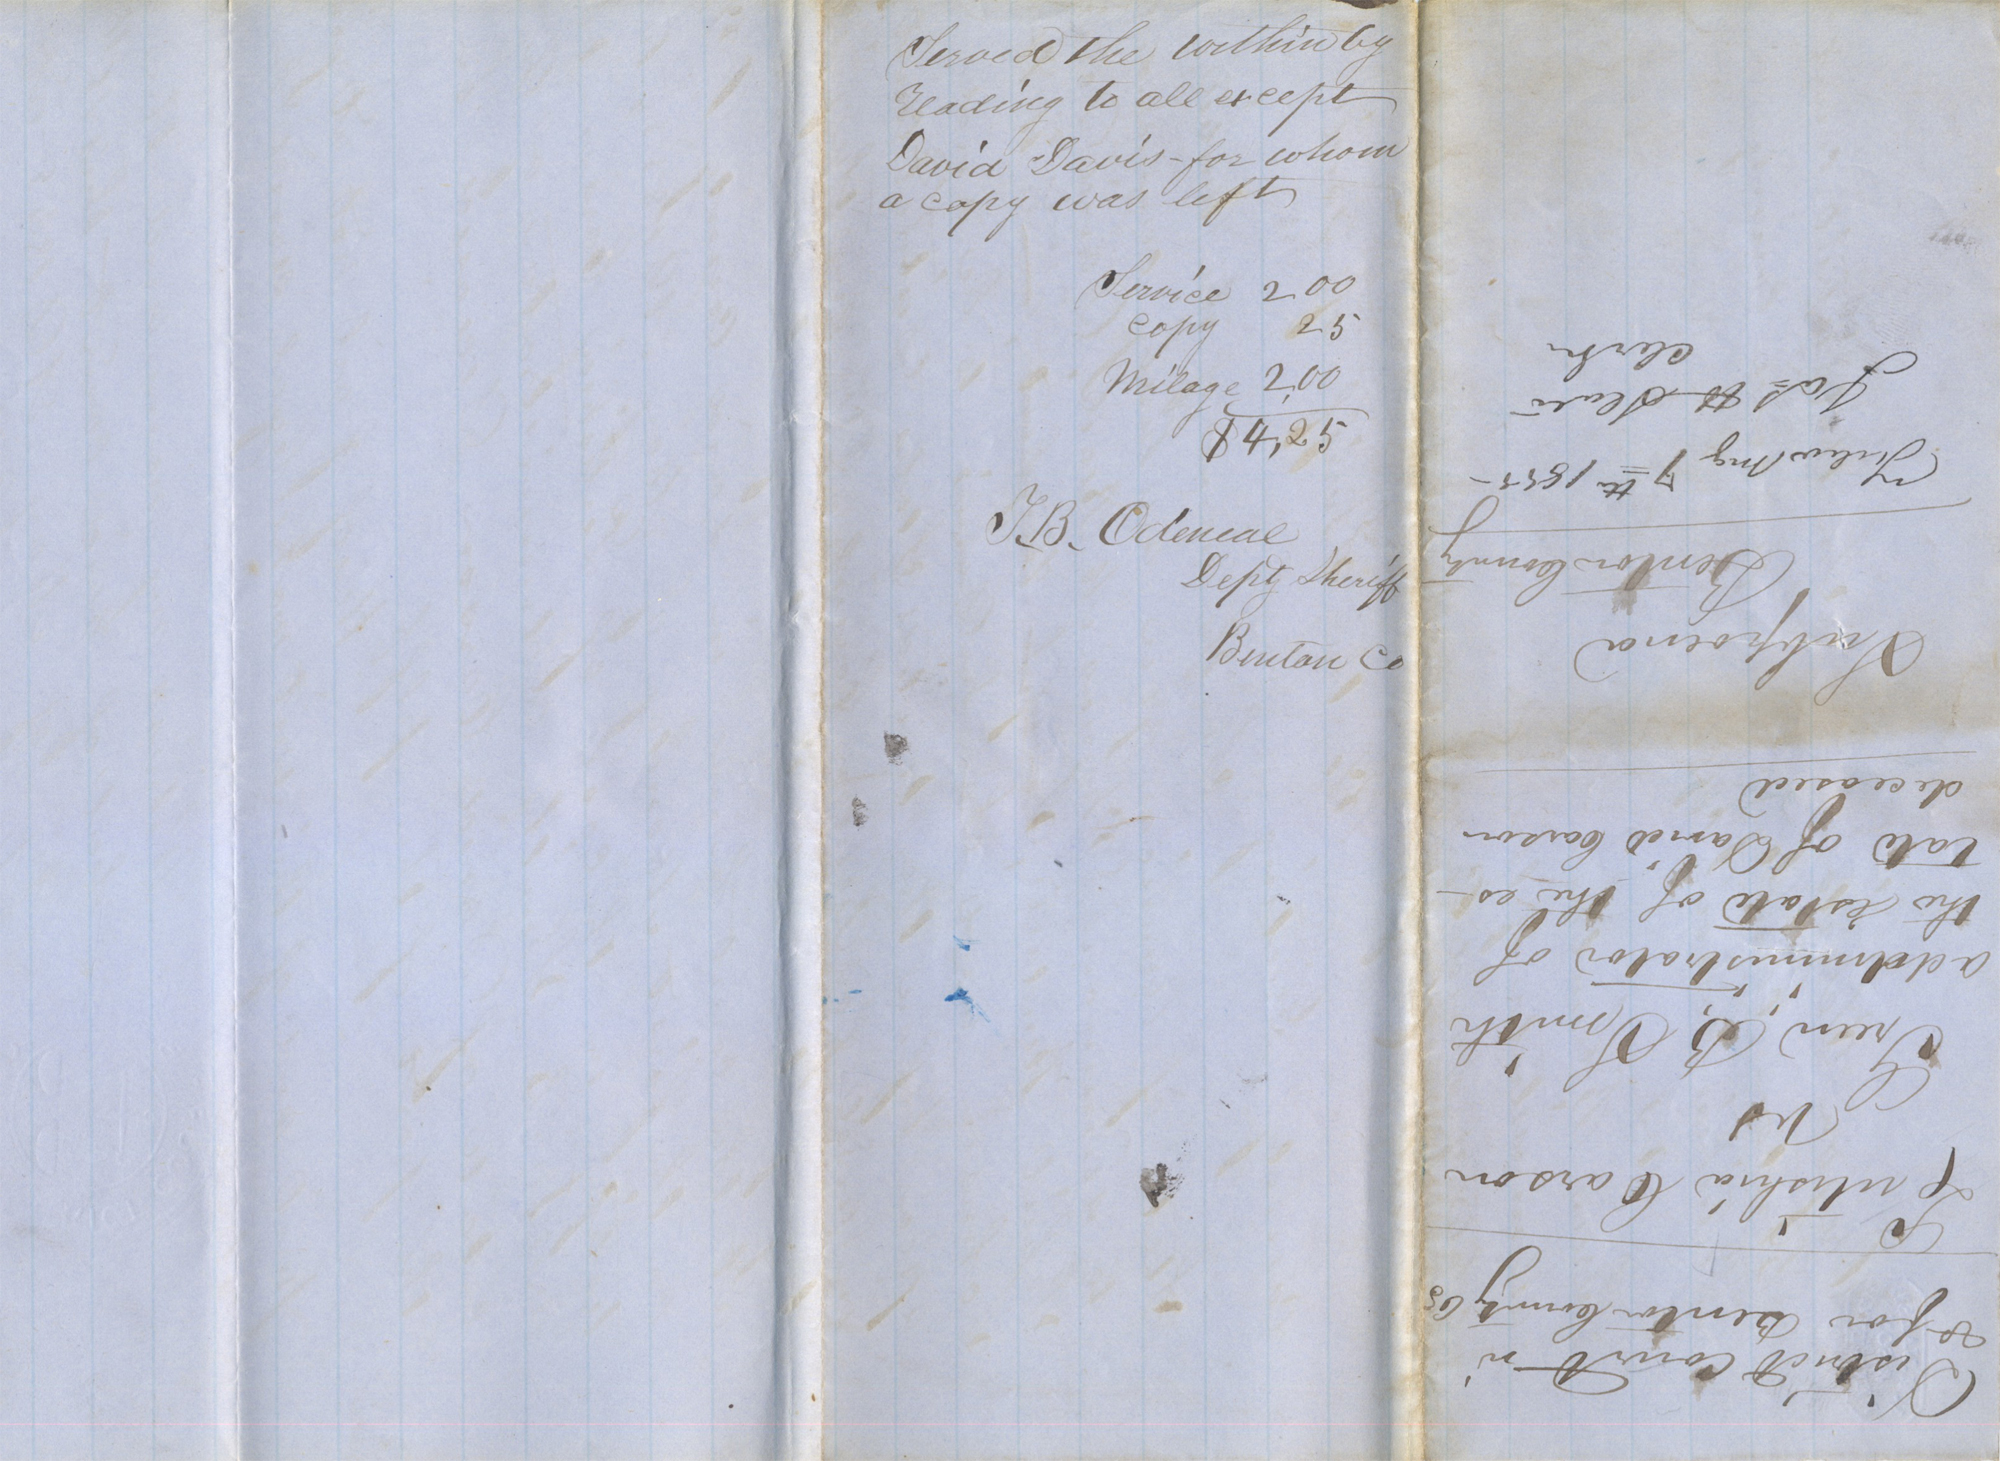 Served the within by
reading to all except
David Davis - for whom
a copy was left
Service 2 00
copy 25
Milage 2,00
$4,25
T.B. Odeneal
Depty Sheriff
Benton Co
District Court in
& for Benton County
Letitshia Carson
vs
Green, B, Smith
addministrator of
the Estate of, the es-
tate of David Carson
deceased
Subpoena
Benton County
Filed May 7th 1855
Jas H Slater
Clerk